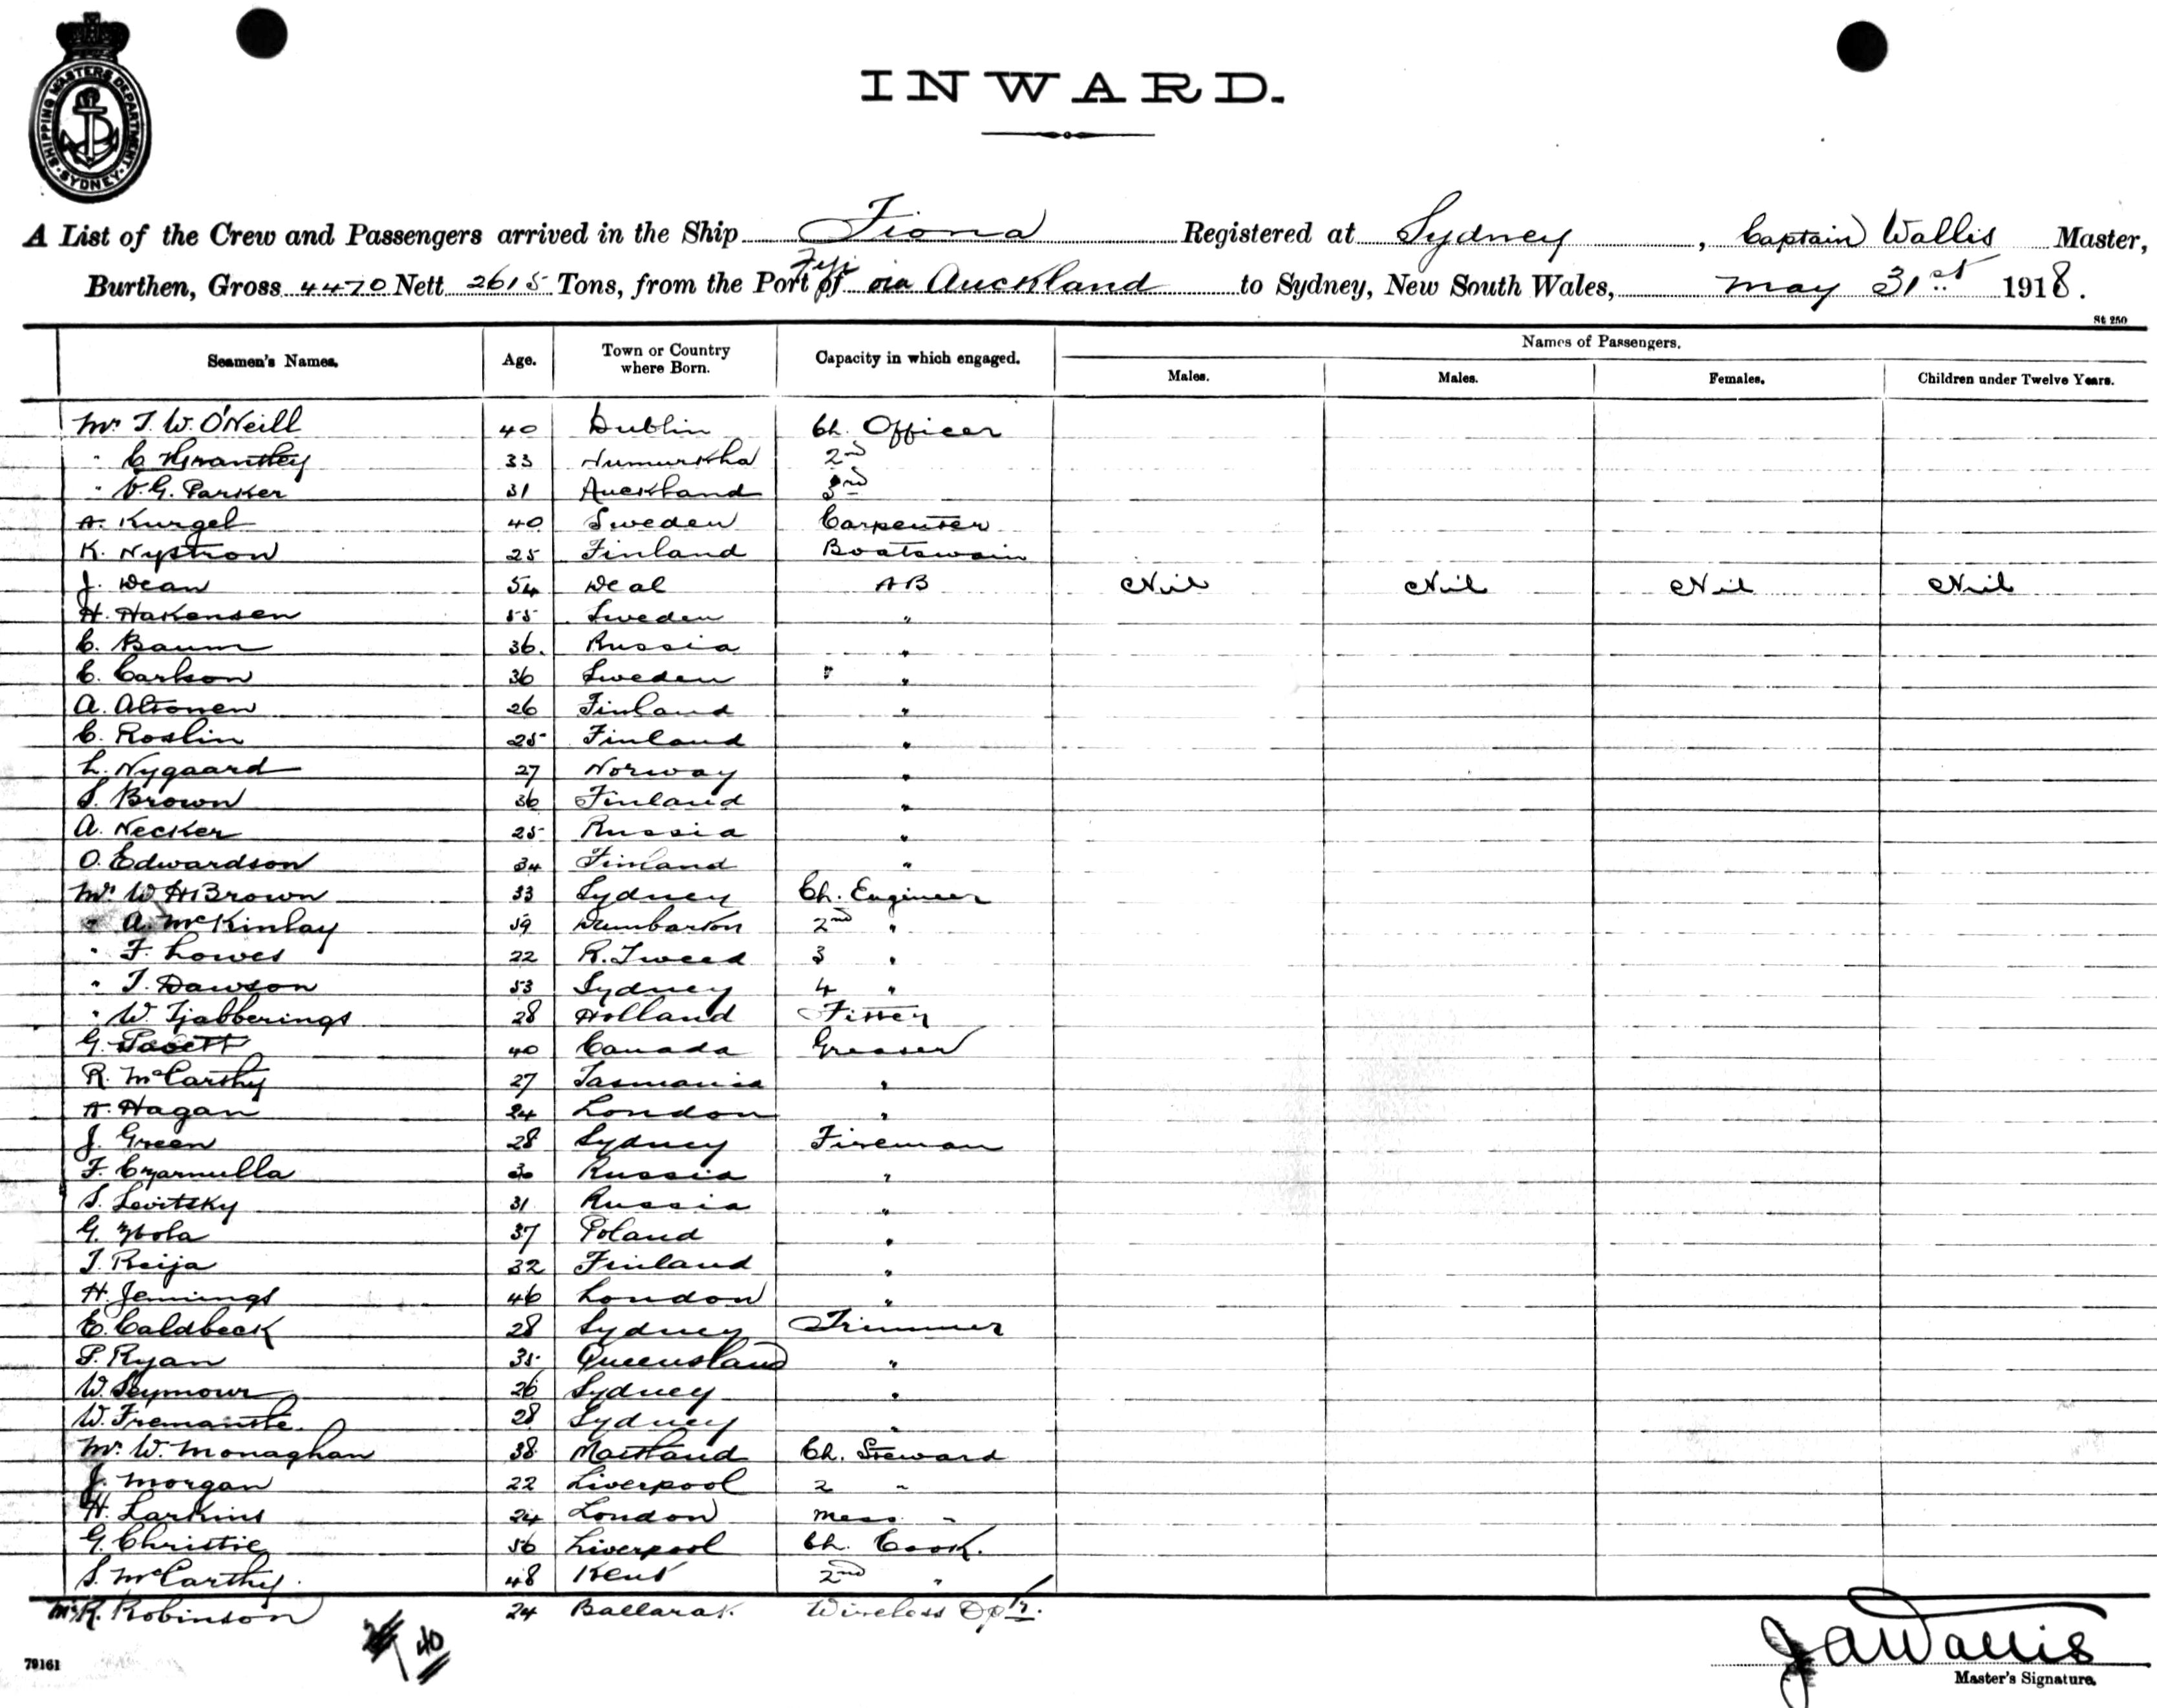 SHIPPING MASTERS DEPARTMENT
SYDNEY
INWARD.
A List of the Crew and Passengers arrived in the Ship Fiona Registered at Sydney, Captain Wallis Master,
Burthen, Gross 4470 Nett 2615 Tons, from the Port of Fiji via Auckland to Sydney, New South Wales, May 31st 1918.
St 250
Seamen's Names. Age. Town or Country where Born. Capacity in which engaged. Names of Passengers.
Males. Males. Females. Children under Twelve Years.
Mr T. W. O'Neill 40 Dublin Ch. Officer
" C 33 Numurkha 2nd
" V. G. Parker 31 Auckland 3rd
A. Kurgel 40 Sweden Carpenter
K. Nystron 25 Finland Boatswain
J. Dean 54 Deal AB Nil Nil Nil Nil
H. Hakensen 55 Sweden "
C. Baum 36. Russia "
C. Carlson 36 Sweden "
A. Altonen 26 Finland "
C. Roslin 25 Finland "
L. Nygaard 27 Norway "
S. Brown 36 Finland "
A. Necker 25 Russia "
O. Edwardson 34 Finland "
Mr W H Brown 33 Sydney Ch. Engineer
" A. McKinlay 59 Dumbarton 2nd "
" F. Lowes 22 R. Tweed 3 "
" T. Dawson 53 Sydney 4 "
" W. Tjabberings 28 Holland Fitter
G. 40 Canada Greaser
R. McCarthy 27 Tasmania "
A. Hagan 24 London "
J. Green 28 Sydney Fireman
F. Czarnulla 30 Russia "
S. Levitsky 31 Russia "
G. Zbola 37 Poland "
T. Reija 32 Finland "
H. Jennings 46 London "
E. Caldbeck 28 Sydney Trimmer
P. Ryan 35 Queensland "
W. Seymour 26 Sydney "
W. Fremantle. 28 Sydney "
Mr. W. Monaghan 38 Maitland Ch. Steward
J. Morgan 22 Liverpool 2 "
H. Larkins 24 London Mess "
G. Christie 56 Liverpool Ch. Cook.
S. McCarthy. 48 Kent 2nd "
Mr R. Robinson 24 Ballarat. Wireless Optr.
40
J A Wallis
79161
Master's Signature.